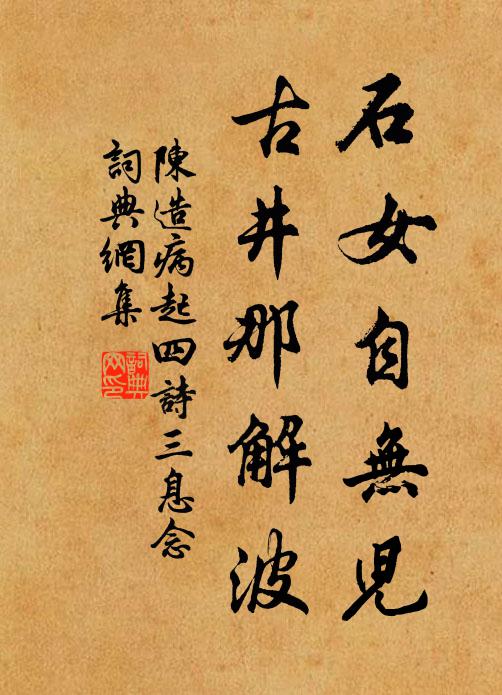 石女自無児
古井那解波
陳造病起四詩三息念
詞典網集